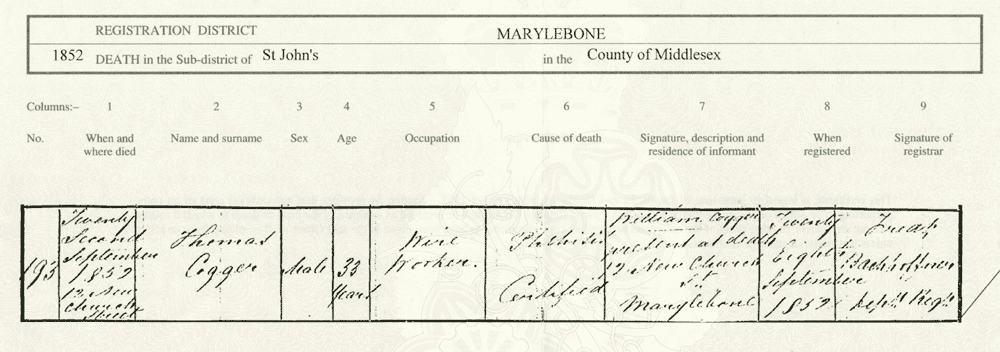 REGISTRATION DISTRICT MARYLEBONE
1852 DEATH in the Sub-district of St John's in the County of Middlesex
Columns:- 1 2 3 4 5 6 7 8 9
No. When and where died Name and surname Sex Age Occupation Cause of death Signature, description and residence of informant When registered Signature of registrar
193
Twenty
Second
September
1852
12 New
Church
Street
Thomas
Cogger
Male
33
Years
Wire
Worker.
Phthisis
Certified
William Cogger
present at death
12 New Church
St
Marylebone
Twenty
Eight
September
1852
Bachhoffner
Depy Regr